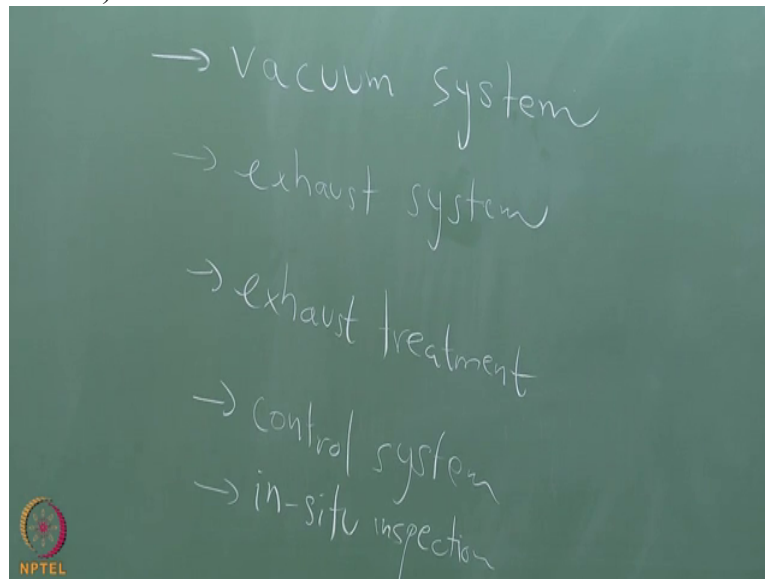 → Vacuum system
→ exhaust system
→ exhaust treatment
→ control system
→ in-situ inspection
NPTEL